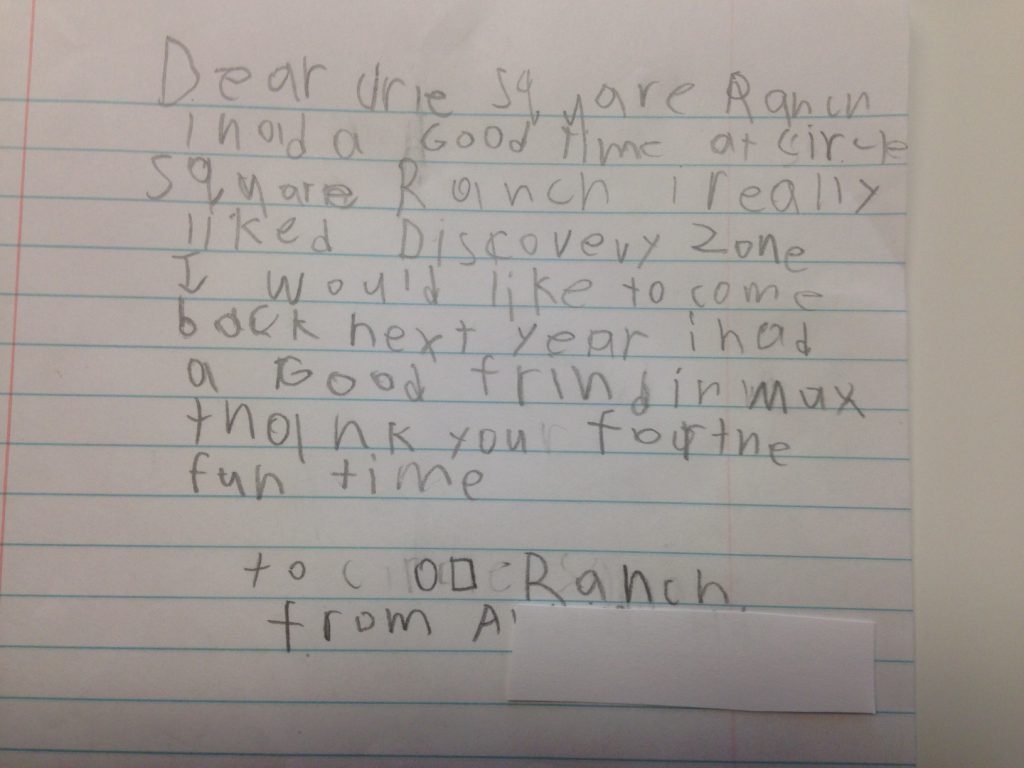 Dear Urie Square Ranch
I had a Good time at circle
Square Ranch i really
liked Discovery Zone
I would like to come
back next year i had
a Good frind in max
thank your for the
fun time
to O□ Ranch
from A